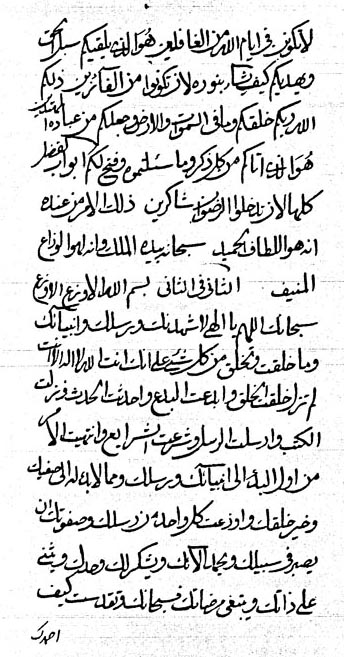 لا تكونن في ايام الله من الغافلين هو الذي يلقيكم سبل الحق
ويهديكم كيف يشاء بنوره لان تكونوا من الفائزين ذلكم
الله ربكم خلقكم وما في السموات والارض وجعلكم من عباده
هو الذي اتاكم من كل ذكر وما سئلتموه وفتح لكم ابواب الفضل
كلها لان تدخلوا الرضوان شاكرين ذلك الامر من عنده
انه هو اللطاف الحميد سبحانه بيده الملك وانه لهو الوزاع
المنيف الثاني في الثاني بسم الله الاوزع الاوزع
سبحانك اللهم يا الهي لاشهدنك ورسلك وانبيائك
وما خلقت وتخلق من كل شيء على انك انت الله لا اله الا انت
لم تزل خلقت الخلق وابدعت البدع واحدثت الحدث ونزلت
الكتب وارسلت الرسل وشرعت الشرايع وانتهيت الامر
من اول البدء الى انبيائك ورسلك ومما لا بدء له الى صفيك
وخير خلقك واوزعت كل واحد من رسلك وصفوتك ان
يصبر في سبيلك ويحمد الائك ويشكر لك وحدك ويثني
على ذاتك ويبتغي مرضاتك فسبحانك وتقدست كيف
احمدك